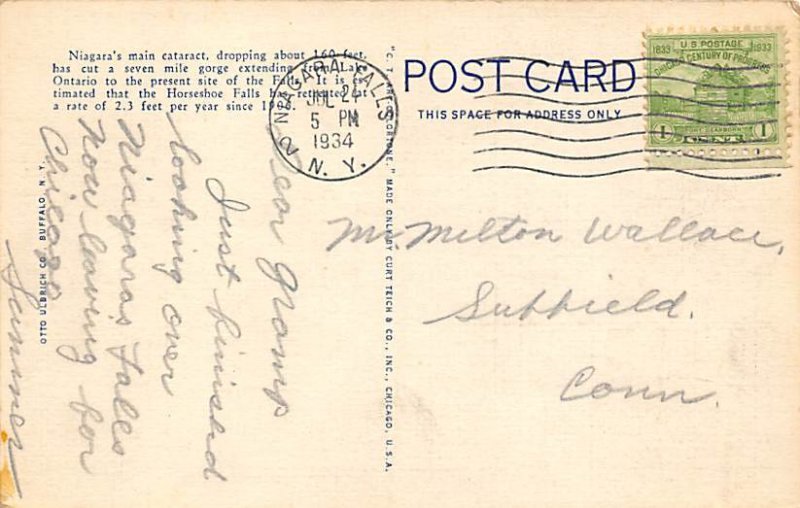 Niagara's main cataract, dropping about 160 feet,
has cut a seven mile gorge extending from Lake
Ontario to the present site of the Falls. It is es-
timated that the Horseshoe Falls has retreated at
a rate of 2.3 feet per year since
NIAGARA FALLS
2
JUL 24
5 PM
1934
N. Y.
POST CARD
THIS SPACE FOR ADDRESS ONLY
1833 U S POSTAGE 1933
CHICAGO CENTURY OF PROGRESS
FORT DEARBORN
1 CENT 1
"C. T. ART-COLORTONE," MADE ONLY BY CURT TEICH & CO., INC., CHICAGO, U.S.A.
OTTO ULBRICH CO. BUFFALO, N. Y.
Dear Gramp
Just finished
looking over
Niagara's Falls
Now leaving for
Chicago
Sumner
Mr. Milton Wallace,
Suffield.
Conn.